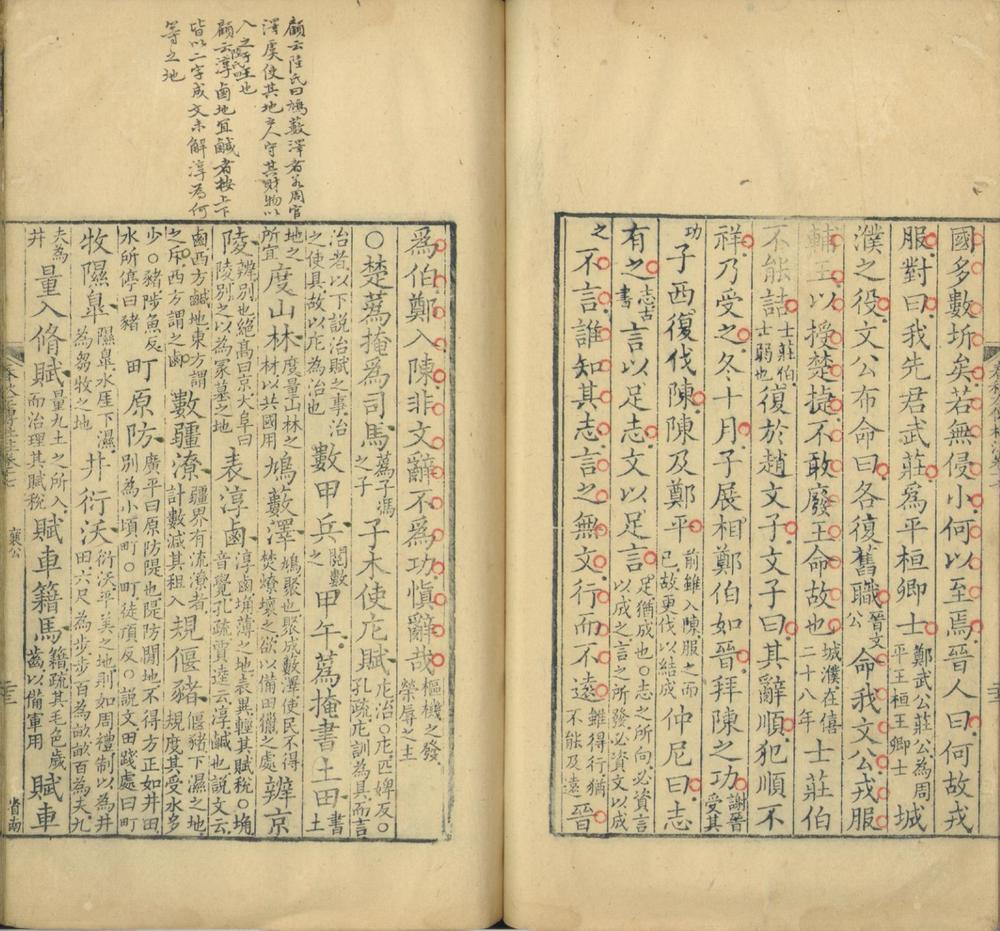 國多數圻矣若無侵小何以至焉晉人曰何故戎
服對曰我先君武莊爲平桓卿士鄭武公莊公為周平王桓王卿士城
濮之役文公布命曰各復舊職晉文公命我文公戎服
輔王以授楚捷不敢廢王命故也城濮在僖二十八年士莊伯
不能詰士莊伯士弱也復於趙文子文子曰其辭順犯順不
祥乃受之冬十月子展相鄭伯如晉拜陳之功謝晉受其
功子西復伐陳陳及鄭平前雖入陳服之而已故更伐以結成仲尼曰志
有之志古書言以足志文以足言足猶成也○志之所向必資言以成之言之所發必資文以成
之不言誰知其志言之無文行而不遠雖得行猶不能及遠晉
顧云陸氏曰鳩藪澤者若周官
澤虞使其地之人守其財物以
入之于王也
顧云淳鹵地宜鹹者按上下
皆以二字成文未解淳為何
等之地
爲伯鄭入陳非文辭不爲功愼辭哉樞機之發榮辱之主
○楚蒍掩爲司馬蒍子馮之子子木使庀賦庀治○庀匹婢反○孔疏庀訓為具而言
治者以下說治賦之事治之使具故以庀為治也數甲兵閱數之甲午蒍掩書土田書土
地之所宜度山林度量山林之材以共國用鳩藪澤鳩聚也聚成藪澤使民不得焚燎壞之欲以備田獵之處辨京
陵辨別也絕高曰京大阜曰陵別之以為冢墓之地表淳鹵淳鹵埆薄之地表異輕其賦稅○埆音覺孔疏賈逵云淳鹹也說文云
鹵西方鹹地東方謂之斥西方謂之鹵數疆潦疆界有流潦者計數減其租入規偃豬偃豬下濕之地規度其受水多
少○豬陟魚反水所停曰豬町原防廣平曰原防隄也隄防閒地不得方正如井田別為小頃町○町徒頂反○說文田踐處曰町
牧隰皐隰皐水涯下濕為芻牧之地井衍沃衍沃平美之地則如周禮制以為井田六尺為步步百為畝畝百為夫九
夫為井量入脩賦量九土之所入而治理其賦稅賦車籍馬籍疏其毛色歲齒以備軍用賦車
襄公